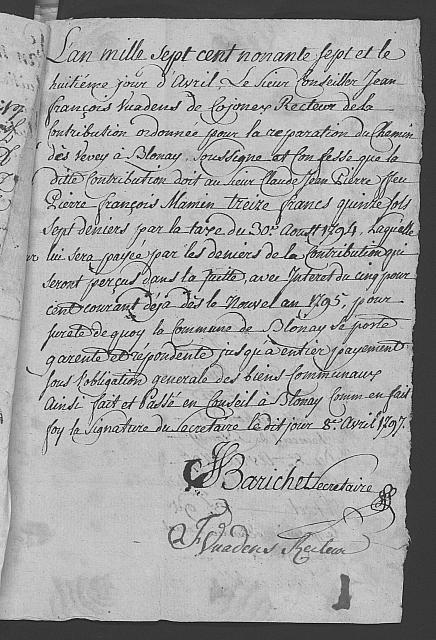 L'an mille Sept cent nonante Sept et le
huitiéme jour d'Avril, Le Sieur Conseiller Jean
François Vuadens de Cojonex Recteur de la
Contribution ordonnée pour la reparation du Chemin
dès Vevey à Blonay, Soussigné at Confessé que la
ditte Contribution doit au Sieur Claude Jean Pierre ffeu
Pierre François Mamin treize francs quinze Sols
Sept deniers par la taxe du 30e Aoust 1794. Laquelle
lui Sera payée par les deniers de la Contribution qui
Seront perçus dans la Suitte, avec Interet du cinq pour
cent courant déjà dès le Nouvel an 1795, pour
Sureté de quoy la Commune de Blonay Se porte
garente et répondente jusqu'à entier payement
Sous l'obligation generale des biens Communaux
Ainsi fait et Passé en Conseil à Blonay Comm en fait
foy la Signature du Secretaire le dit jour 8e Avril 1797.
Barichet Secretaire
Vuadens Recteur